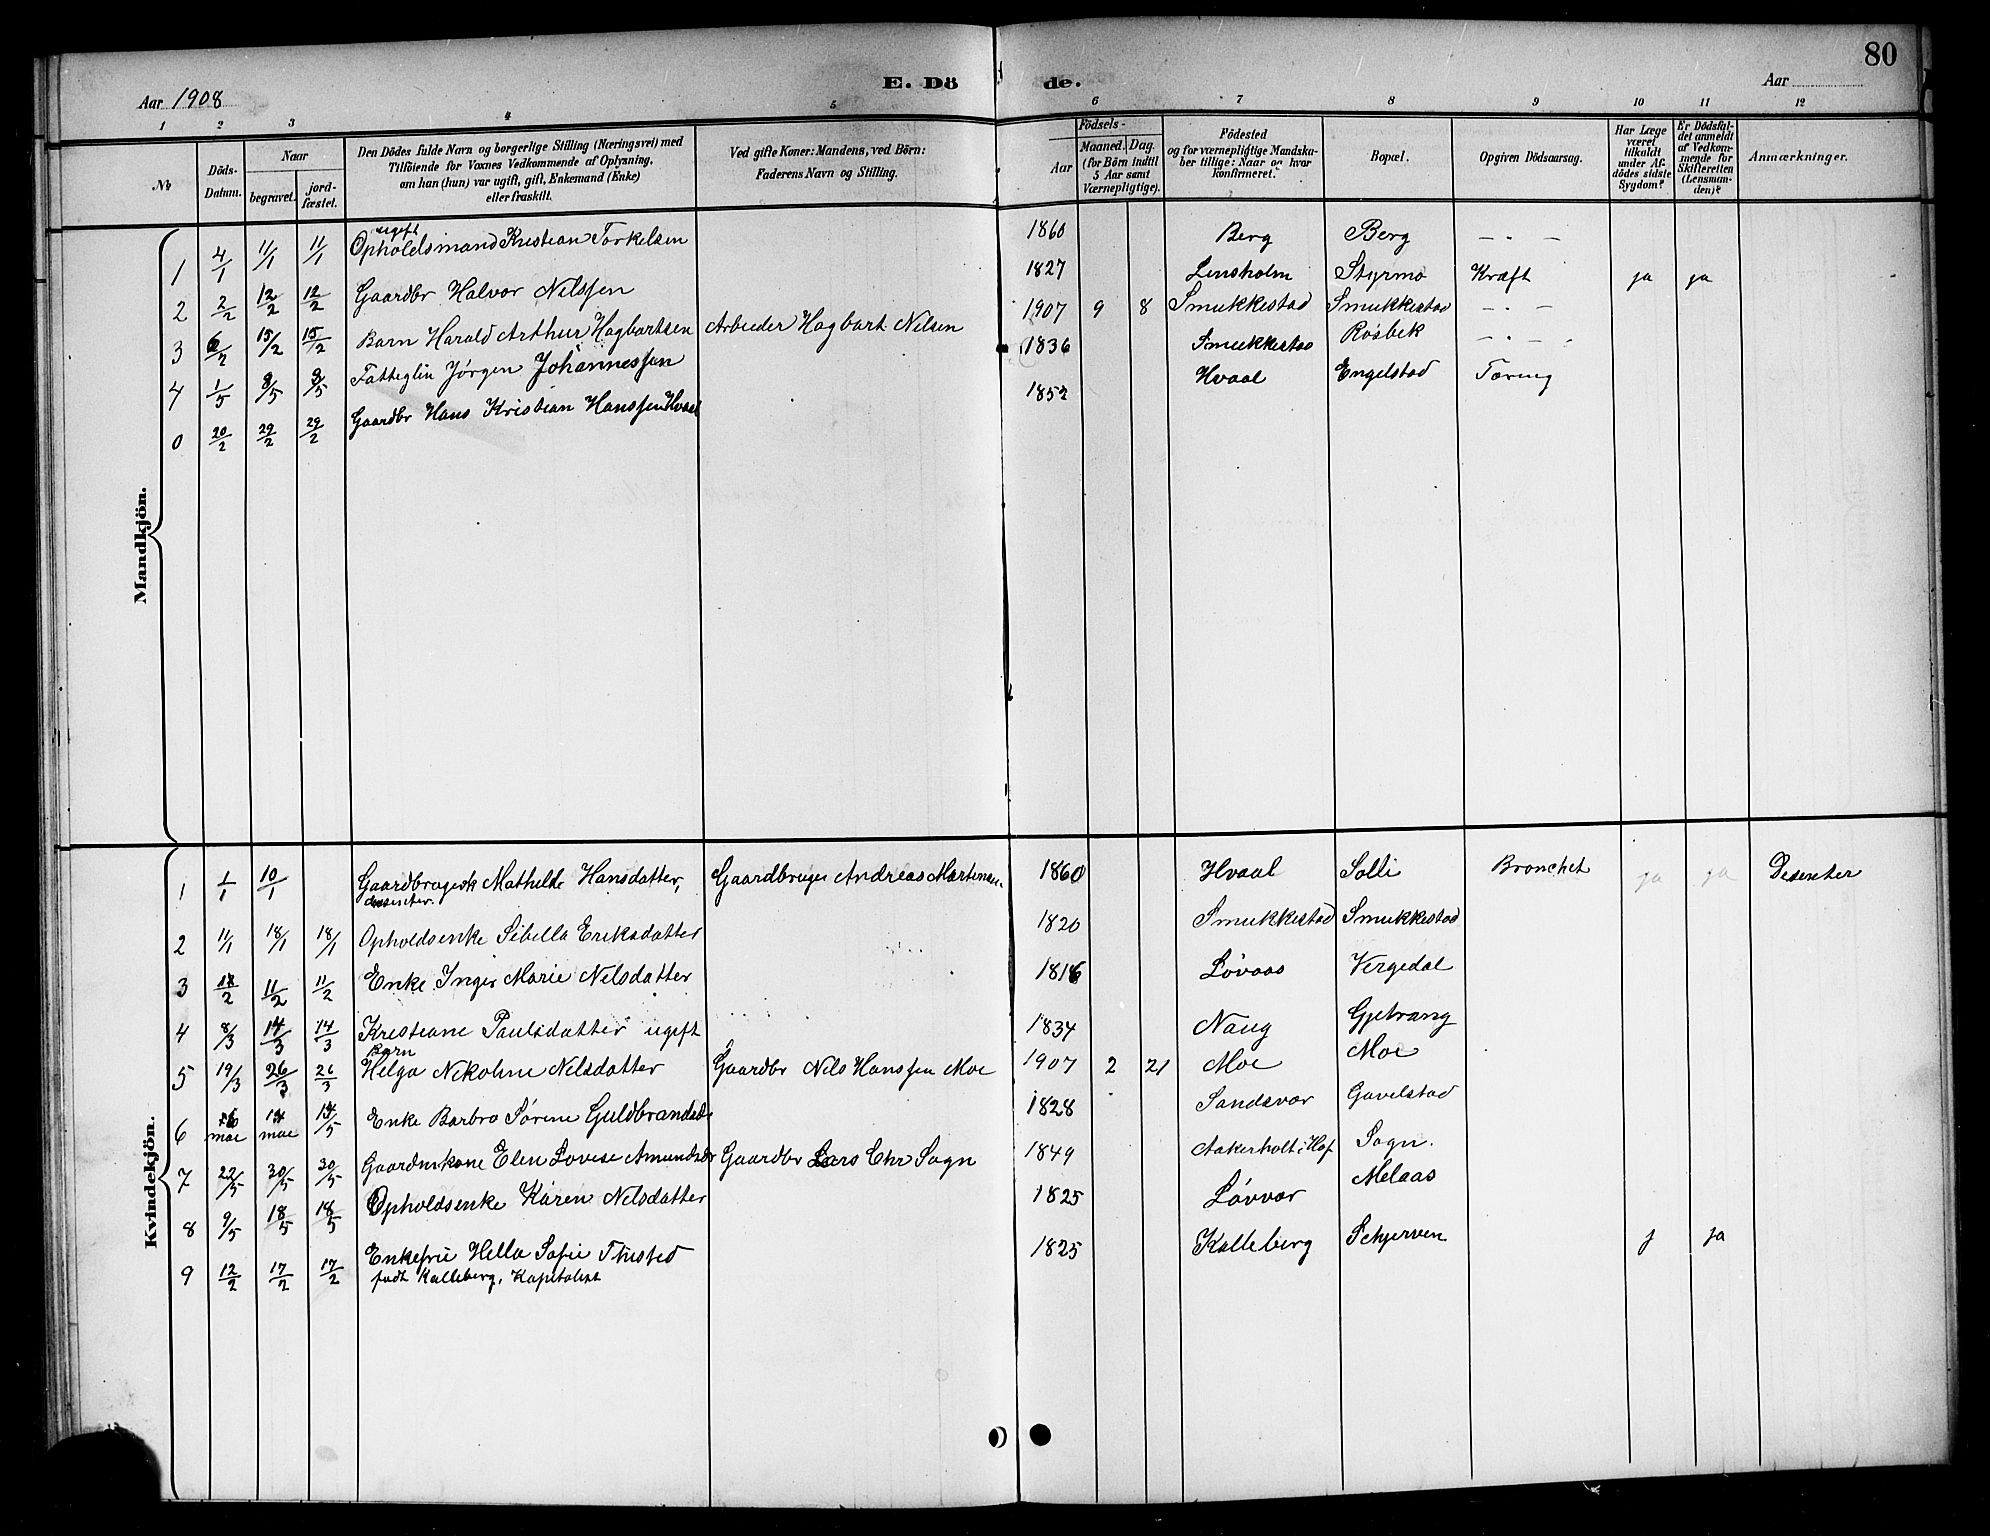 80
E. Dö de.
Aar 1908 Aar
1 2 3 4 5 6 7 8 9 10 11 12
№
Döds-Datum.
Naar
begravet. jord-fæstet.
Den Dödes fulde Navn og borgerlige Stilling (Næringsvei) med
Tilföiende for Voxnes Vedkommende af Oplysning,
om han (hun) var ugift, gift, Enkemand (Enke)
eller fraskilt.
Ved gifte Koner: Mandens, ved Börn:
Faderens Navn og Stilling.
Födsels-
Aar
Maaned. Dag.
(for Börn indtil
5 Aar samt
Værnepligtige).
Födested
og for værnepligtige Mandska-
ber tillige: Naar og hvor
konfirmeret.
Bopæl.
Opgiven Dödsaarsag.
Har Læge
været
tilkaldt
under Af-
dödes sidste
Sygdom?
Er Dödsfal-
det anmeldt
af Vedkom-
mende for
Skifteretten
(Lensman-
den)?
Anmærkninger.
Mandkjön.
ugift
1 4/1 11/1 11/1 Opholdsmand Kristian Torkelsen 1860 Berg Berg — " —
2 2/2 12/2 12/2 Gaardbr Halvor Nilssen 1827 Linsholm Styrmo Kræft ja ja
3 6/2 15/2 15/2 Barn Harald Arthur Hagbartsen Arbeider Hagbart Nilsen 1907 9 8 Smukkestad Smukkestad — " —
4 1/5 8/5 8/5 Fatteglm Jørgen Johannessen 1836 Smukkestad Rosbek — " —
0 20/2 29/2 29/2 Gaardbr Hans Kristian Hanssen Hvaal 1852 Hvaal Engelstad Tæring
Kvindekjön.
1 1/1 10/1 Gaardbrugersk Mathilde Hansdatter, Gaardbruger Andreas Martinsen 1860 Hvaal Solli Bronchet ja ja Desenter
dissenter.
2 11/1 18/1 18/1 Opholdsenke Sibella Eriksdatter 1820 Smukkestad Smukkestad
3 18/2 11/2 11/2 Enke Inger Marie Nelsdatter 1816 Løvaas Vergedal
4 8/3 14/3 14/3 Kristiane Paulsdatter ugift 1834 Naug Gjetrang
Barn
5 19/3 26/3 26/3 Helga Nikoline Nelsdatter Gaardbr Nels Hanssen Moe 1907 2 21 Moe Moe
6 mae 14 mae 14/5 Enke Barbro Sørine Guldbrandsd 1828 Sandsvær Gavelstad
7 22/5 30/5 30/5 Gaardmkone Elen Lovise Amundsdr Gaardbr Lars Chr Sogn 1849 Aakerholt i Hof Sogn.
8 9/5 18/5 18/5 Opholdsenke Karen Nelsdatter 1825 Løvvar Melaas
9 12/2 17/2 17/2 Enkefru Hella Sofie Thisted 1825 Kalleberg Schjerven j ja
født Kalleberg, Kapitalist